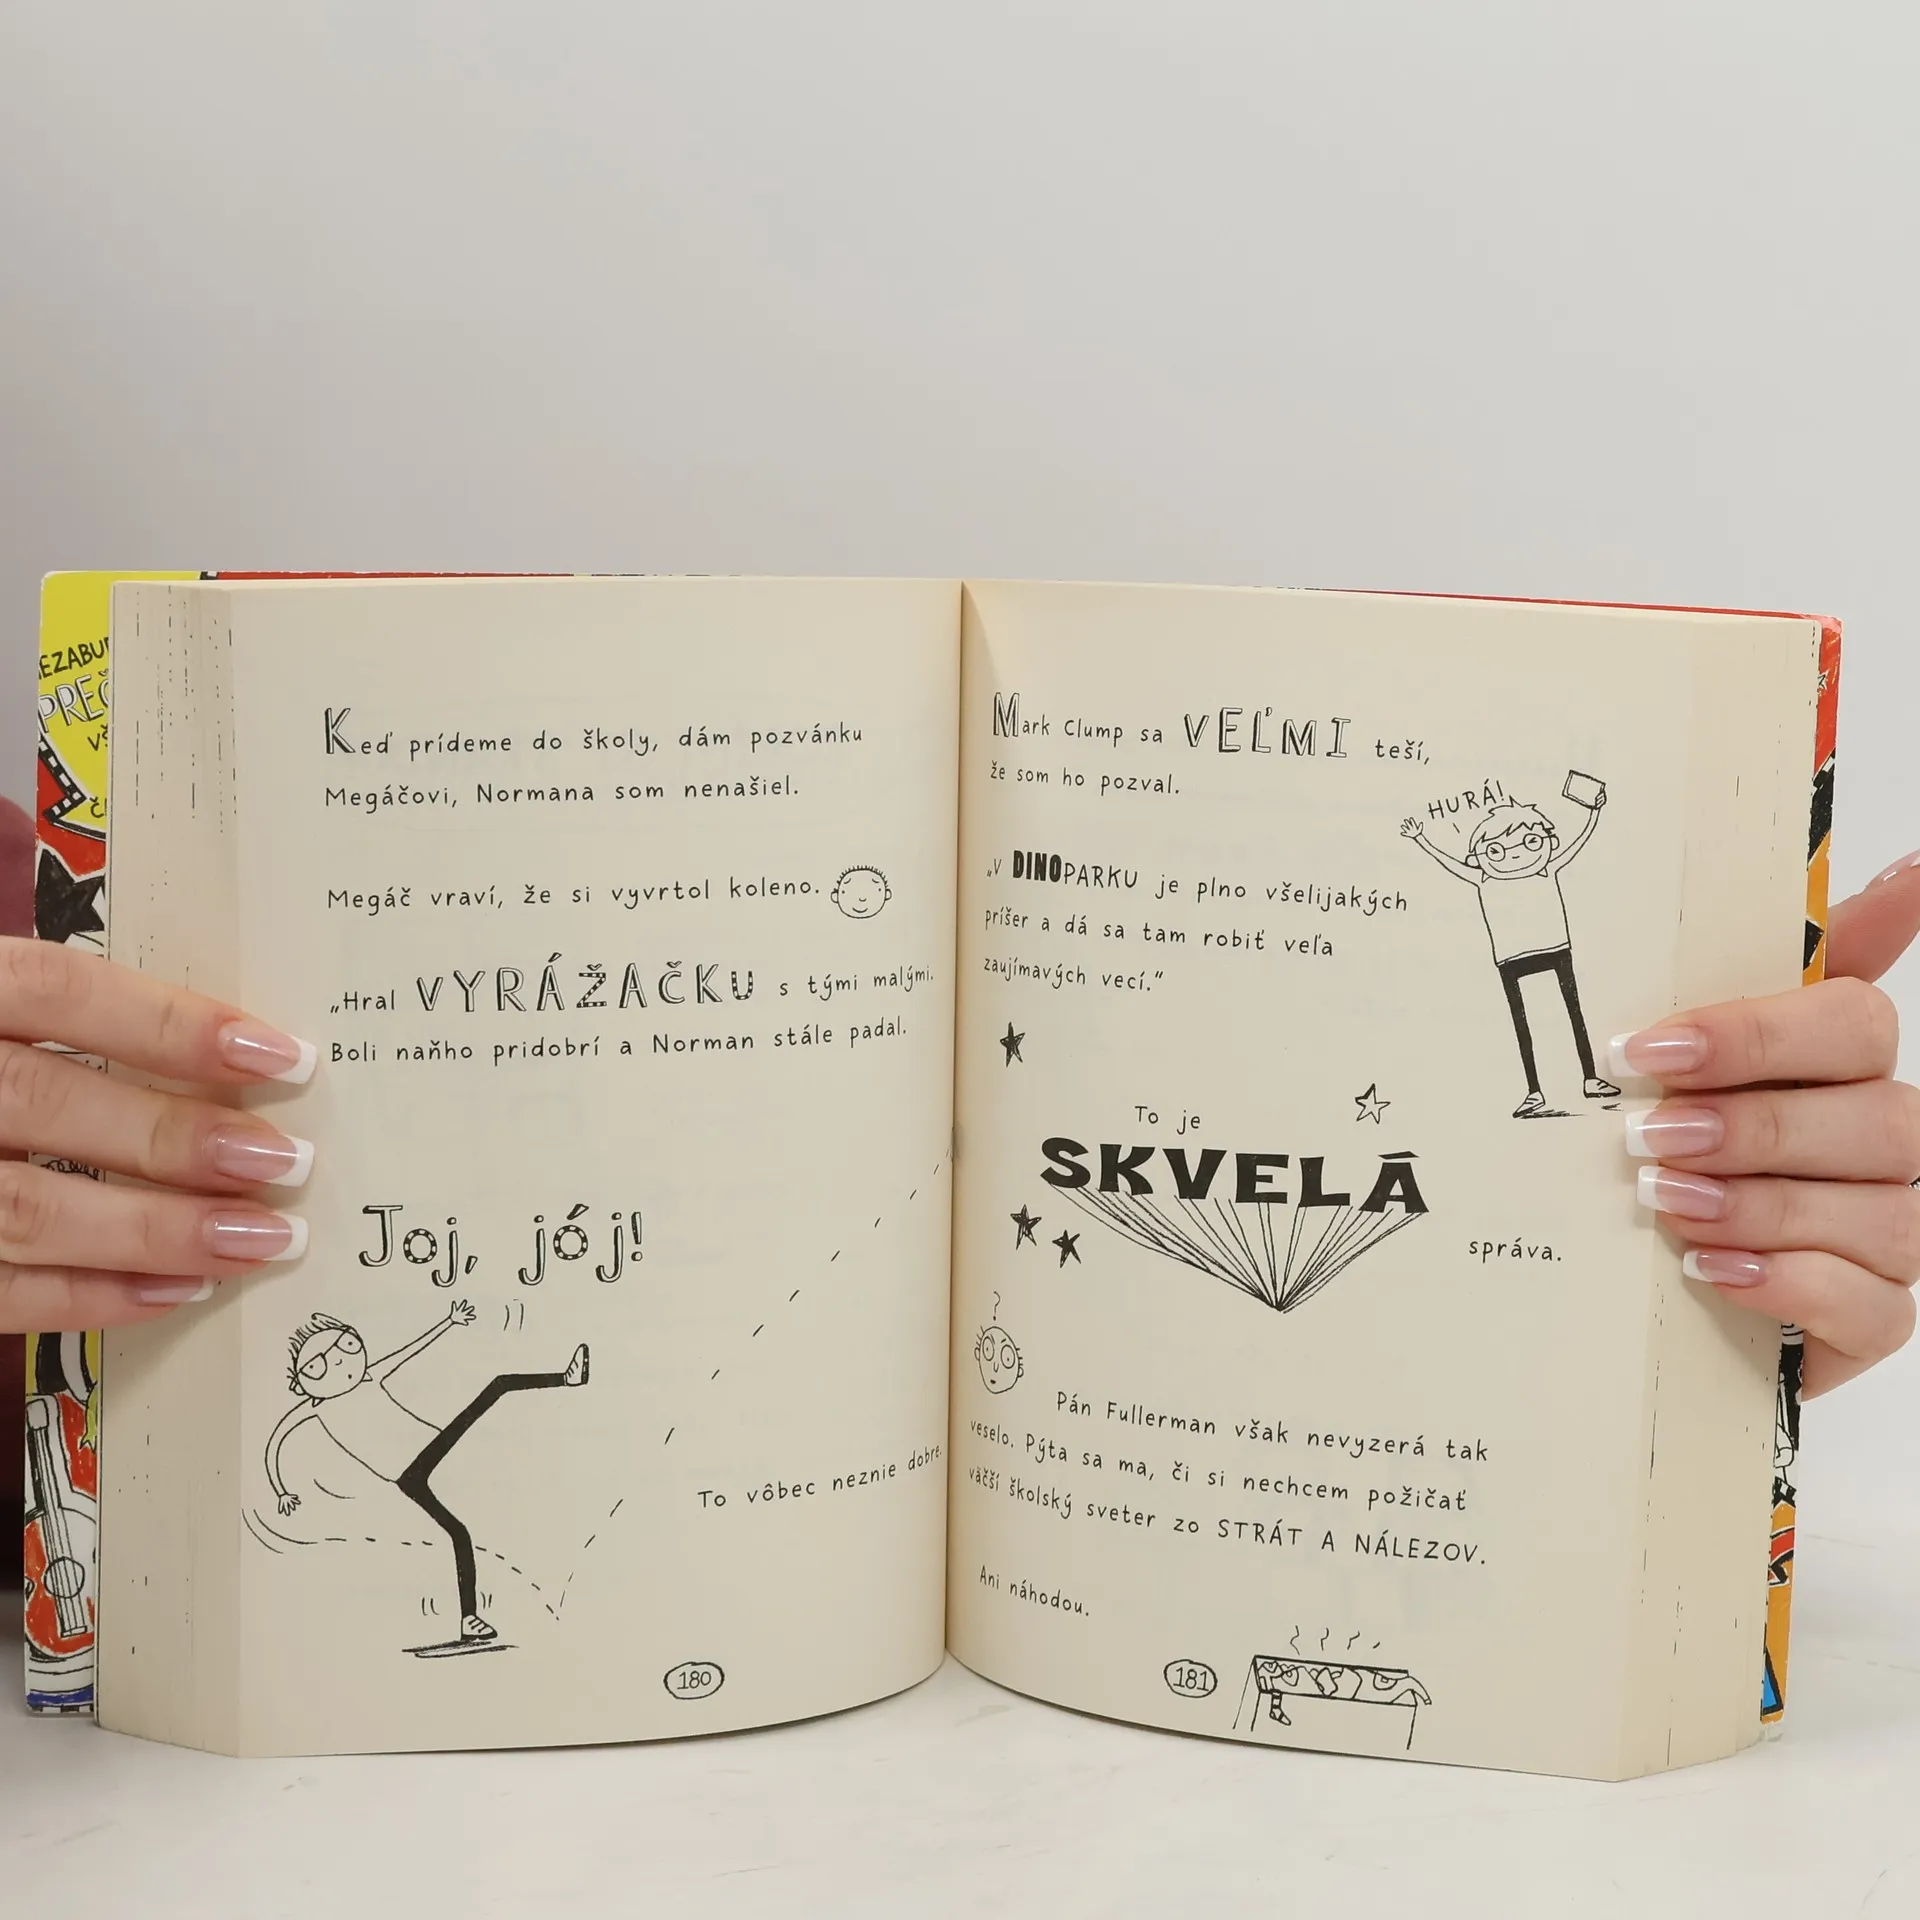 Keď prídeme do školy, dám pozvánku
Megáčovi, Normana som nenašiel.
Megáč vraví, že si vyvrtol koleno.
„Hral VYRÁŽAČKU s tými malými.
Boli naňho pridobrí a Norman stále padal.
Joj, jój!
To vôbec neznie dobre.
180
Mark Clump sa VEĽMI teší,
že som ho pozval.
HURÁ!
„V DINOPARKU je plno všelijakých
príšer a dá sa tam robiť veľa
zaujímavých vecí.“
To je
SKVELÁ
správa.
?
Pán Fullerman však nevyzerá tak
veselo. Pýta sa ma, či si nechcem požičať
väčší školský sveter zo STRÁT A NÁLEZOV.
Ani náhodou.
181